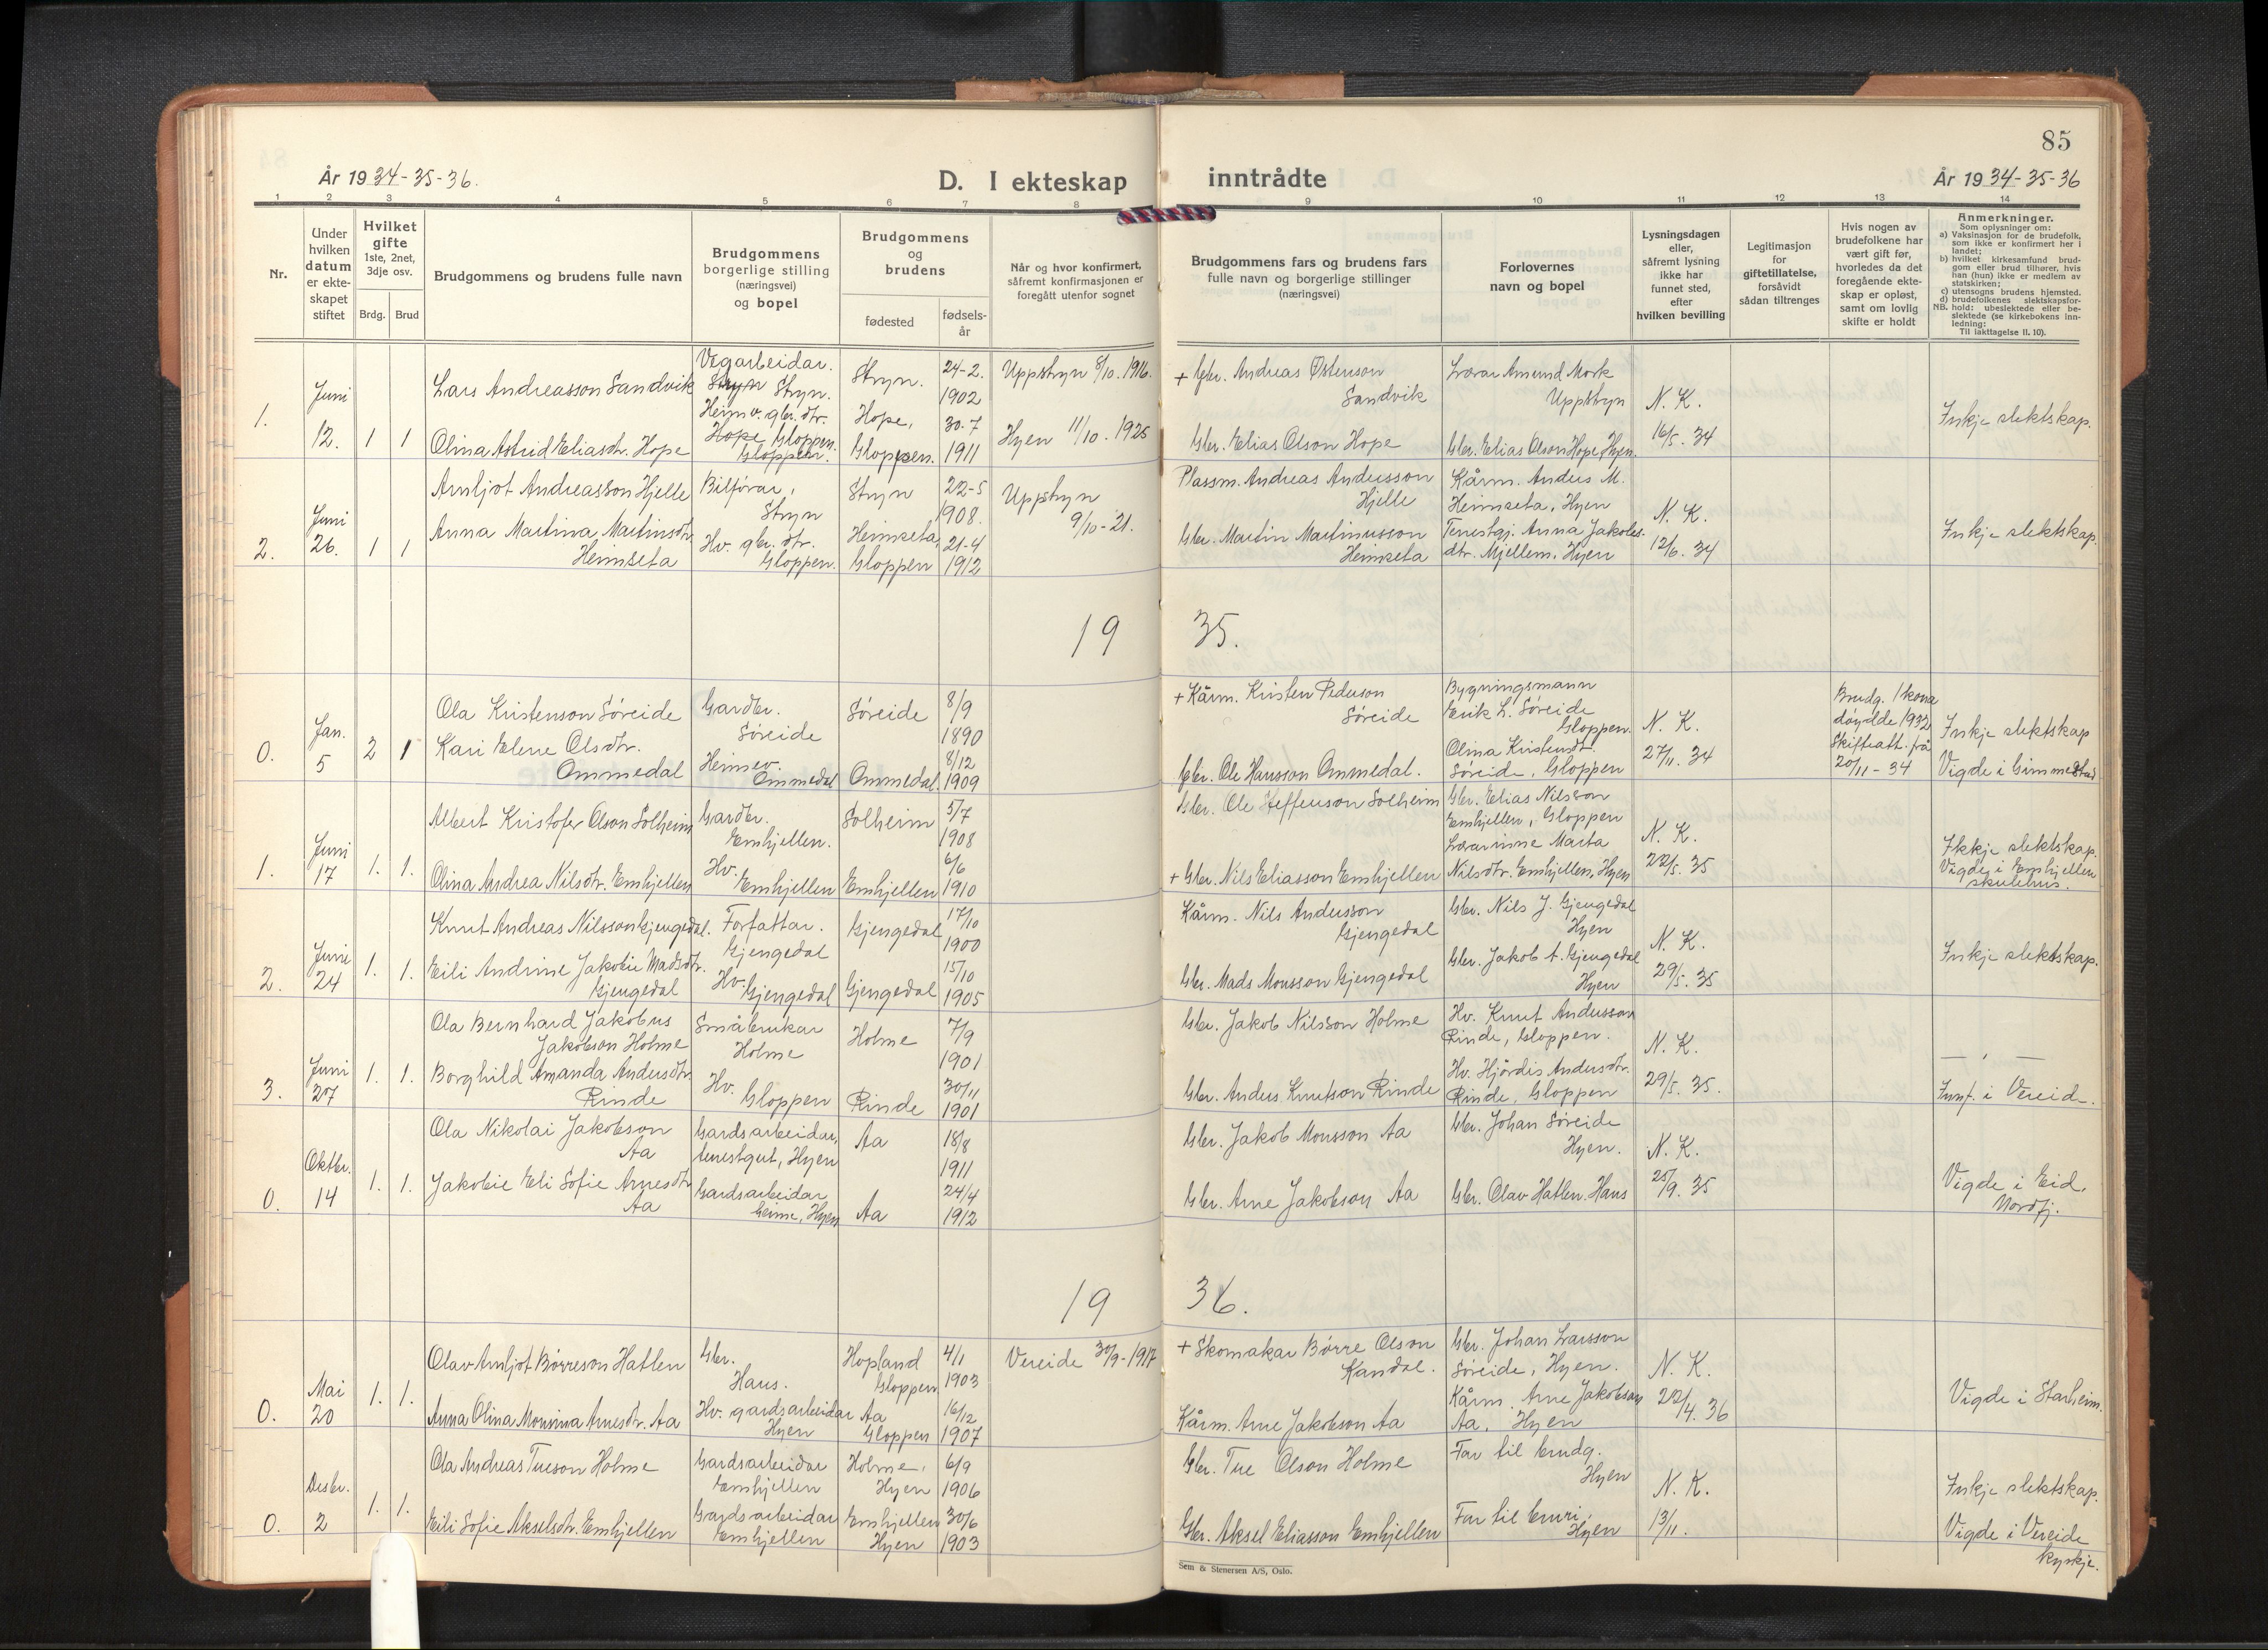 85
År 1934-35-36.
D. I ekteskap
inntrådte
År 1934-35-36
1 2 3 4 5 6 7 8 9 10 11 12 13 14
Nr.
Under
hvilken
datum
er ekte-
skapet
stiftet
Hvilket
gifte
1ste, 2net,
3dje osv.
Brdg. Brud
Brudgommens og brudens fulle navn
Brudgommens
borgerlige stilling
(næringsvei)
og bopel
Brudgommens
og
brudens
fødested
fødsels-
år
Når og hvor konfirmert,
såfremt konfirmasjonen er
foregått utenfor sognet
Brudgommens fars og brudens fars
fulle navn og borgerlige stillinger
(næringsvei)
Forlovernes
navn og bopel
Lysningsdagen
eller,
såfremt lysning
ikke har
funnet sted,
efter
hvilken bevilling
Legitimasjon
for
giftetillatelse,
forsåvidt
sådan tiltrenges
Hvis nogen av
brudefolkene har
vært gift før,
hvorledes da det
foregående ekte-
skap er opløst,
samt om lovlig
skifte er holdt
Anmerkninger.
Som oplysninger om:
a) Vaksinasjon for de brudefolk,
som ikke er konfirmert her i
landet;
b) hvilket kirkesamfund brud-
gom eller brud tilhører, hvis
han (hun) ikke er medlem av
statskirken;
c) utensogns brudens hjemsted.
d) brudefolkenes slektskapsfor-
NB. hold: ubeslektede eller be-
slektede (se kirkebokens inn-
ledning:
Til iakttagelse II. 10).
1.
Juni
12.
1 1
Lars Andreasson Sandvik
Olina Astrid Eliasdtr. Hope
Vegarbeidar.
Stryn Stryn.
Heimv. gbr. dtr.
Hope Gloppen.
Gloppen.
Stryn.
Hope,
Gloppen.
24-2.
1902
30-7
1911
Uppstryn 8/10. 1916.
Hyen 11/10. 1925
+ Gbr. Andreas Østenson
Sandvik
Gbr. Elias Olson Hope
Lærar Amund Mork
Uppstryn
Gbr. Elias Olson Hope, Hyen.
N. K.
16/5. 34
Inkje slektskap.
2.
Juni
26.
1 1
Arnljot Andreasson Hjelle
Anna Martina Martinsdtr.
Heimseta
Bilførar,
Stryn
Hv. gbr. dtr.
Gloppen.
Stryn
Heimseta,
Gloppen
22-5
1908.
21-4
1912
Uppstryn
9/10-21.
Plassm. Andreas Andersson
Hjelle
Gbr. Martin Martinusson
Heimseta
Kårm. Anders M.
Heimseta, Hyen
Tenestgj. Anna Jakobs-
dtr. Mjellem, Hyen
N. K.
12/6. 34
Inkje slektskap.
19 35.
0.
Jan.
5
2 1
Ola Kristenson Søreide
Kari Elene Olsdtr.
Ommedal
Gardbr.
Søreide
Heimev.
Ommedal
Søreide
Ommedal.
8/9
1890
8/12
1909
+ Kårm. Kristen Pederson
Søreide
Gbr. Ole Hansson Ommedal.
Bygningsmann
Eirik L. Søreide
Gloppen.
Olina Kristensdt.
Søreide, Gloppen
N. K.
27/11. 34
Brudg. 1 kona
døydde 1932
Skifteatt. frå
20/11-34
Inkje slektskap
Vigde i Gimmestad
1.
Juni
17
1. 1.
Albert Kristofer Olson Solheim
Olina Andrea Nilsdtr. Emhjellen
Gardbr.
Emhjellen.
Hv.
Emhjellen
Solheim
Emhjellen
5/7
1908
6/6
1910
Gbr. Ole Steffenson Solheim
+ Gbr. Nils Eliasson Emhjellen
Gbr. Elias Nilsson
Emhjellen, Gloppen
Lærarinne Marta
Nilsdtr. Emhjellen, Hyen
N. K.
22/5. 35
Ikkje slektskap.
Vigde i Emhjellen
skulehus.
2.
Juni
24
1. 1.
Knut Andreas Nilsson Gjengedal.
Eili Andrine Jakobie Madsdtr.
Gjengedal
Forfattar.
Gjengedal
Hv.
Gjengedal
Gjengedal
Gjengedal
17/10
1900
15/10
1905
Kårm. Nils Andersson
Gjengedal
Gbr. Mads Monsson Gjengedal
Gbr. Nils J. Gjengedal
Hyen
Gbr. Jakob A. Gjengedal
Hyen
N. K.
29/5. 35
Inkje slektskap.
3.
Juni
27
1. 1.
Ola Bernhard Jakobus
Jakobson Holme
Borghild Amanda Andersdtr.
Rinde
Småbrukar
Holme
Hv.
Gloppen
Holme
Rinde
7/9
1901
30/11
1901
Gbr. Jakob Nilsson Holme
Gbr. Anders Knutson Rinde
Hv. Knut Andersson
Rinde, Gloppen.
Hv. Hjørdis Andersdtr.
Rinde, Gloppen
N. K.
29/5. 35.
— , —
Innf. i Vereide.
0.
Oktbr.
14
1. 1.
Ola Nikolai Jakobson
Aa
Jakobie Eli Sofie Arnesdtr
Aa
Gardsarbeidar,
tenestgut, Hyen
Gardsarbeidar
heime, Hyen
Aa
Aa
18/8
1911
24/4
1912
Gbr. Jakob Monsson Aa
Gbr. Arne Jakobson Aa
Gbr. Johan Søreide
Hyen.
Gbr. Olav Hatlen. Haus
N. K.
25/9. 35
Vigde i Eid,
Nordfj.
19 36.
0.
Mai
20
1. 1.
Olav Arnljot Børreson Hatlen
Anna Olina Monsina Arnesdtr. Aa
Gbr.
Haus.
Hv. gardsarbeidar
Hyen
Hopland
Gloppen
Aa
Gloppen
4/1
1903
16/12
1907
Vereide 30/9-1917
+ Skomakar Børre Olson
Kandal.
Kårm. Arne Jakobson Aa
Gbr. Johan Larsson
Søreide, Hyen.
Kårm. Arne Jakobson
Aa, Hyen
N. K.
22/4. 36
Vigde i Starheim.
0.
Desbr.
2
1. 1.
Ola Andreas Tureson Holme
Eili Sofie Akselsdtr. Emhjellen
Gardsarbeidar
Emhjellen
Gardsarbeidar
Emhjellen
Holme,
Hyen
Emhjellen
Hyen
6/9
1906
30/6
1903
Gbr. Ture Olson Holme
Gbr. Aksel Eliasson Emhjellen
Far til brudg.
Hyen
Far til bruri,
Hyen
N. K.
13/11.
Inkje slektskap.
Vigde i Vereide
kyrkje.
Sem & Stenersen A/S, Oslo.